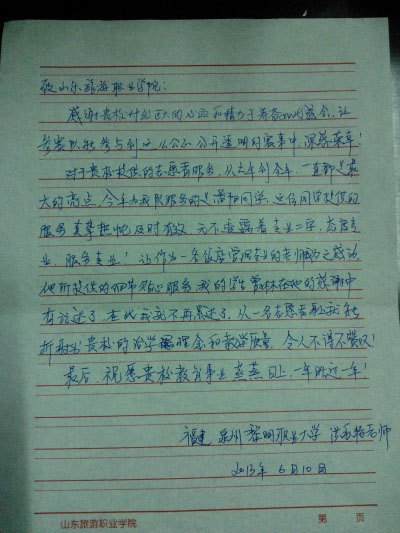 致山东旅游职业学院：
感谢贵校付出巨大的心血和精力于筹备赛会，让
参赛队能参与到公公正公开透明的赛事中，深感荣幸！
对于贵校提供的志愿者服务，从去年到今年，一直都是最
大的亮点，今年为我队服务的是同学，这位同学提供的
服务真挚热忱及时有效，无不透露着专业二字，态度专
业，服务专业！让作为一名酒店管理专业的老师为之感动
他所提供的细节贴心服务，我的学生在他的故事中
有论述了，在此我就不再累述了，从一名志愿者就能
折射出贵校的治学理念和教学质量，令人不得不赞叹！
最后，祝愿贵校教育事业蒸蒸日上，一年胜过一年！
福建泉州黎明职业大学 老师
2013年6月10日
山东旅游职业学院 第 页